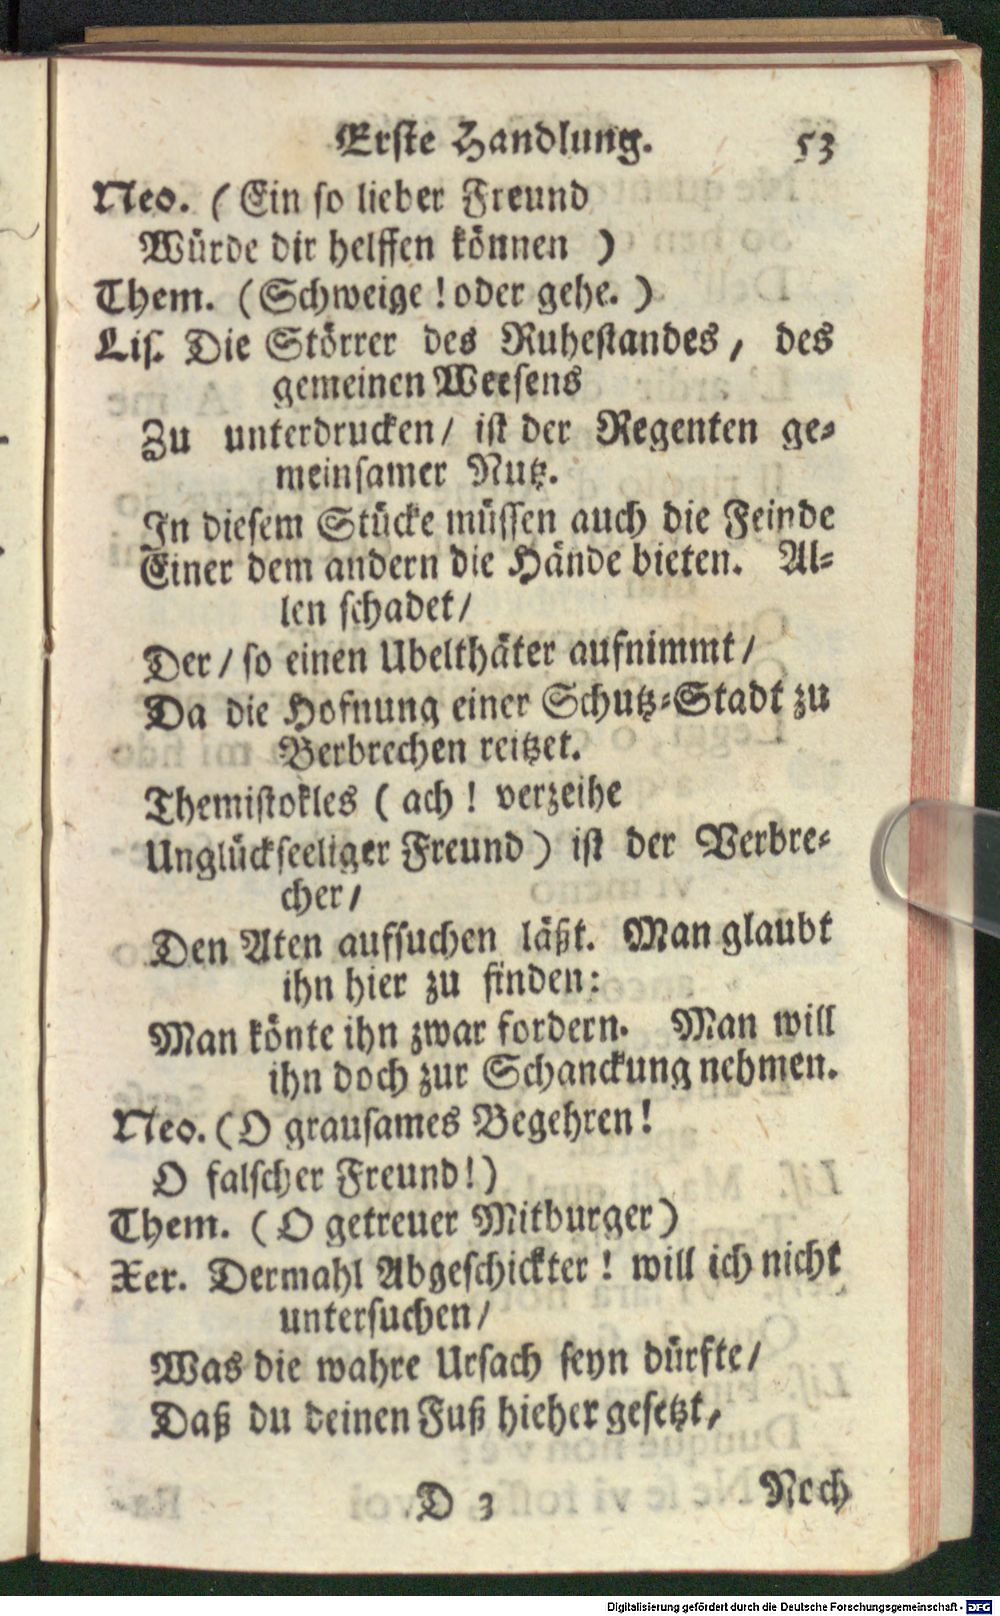 Erste Handlung. 53
Neo. (Ein so lieber Freund
Würde dir helffen können )
Them. (Schweige ! oder gehe. )
Lis. Die Störrer des Ruhestandes, des
gemeinen Weesens
Zu unterdrucken/ ist der Regenten ge-
meinsamer Nutz.
In diesem Stücke müssen auch die Feinde
Einer dem andern die Hände bieten. Al-
len schadet/
Der/ so einen Ubelthäter aufnimmt/
Da die Hofnung einer Schutz-Stadt zu
Verbrechen reitzet.
Themistokles ( ach ! verzeihe
Unglückseeliger Freund) ist der Verbre-
cher/
Den Aten aufsuchen läßt. Man glaubt
ihn hier zu finden:
Man könte ihn zwar fordern. Man will
ihn doch zur Schanckung nehmen.
Neo. (O grausames Begehren!
O falscher Freund!)
Them. (O getreuer Mitburger)
Xer. Dermahl Abgeschickter ! will ich nicht
untersuchen/
Was die wahre Ursach seyn dürfte/
Daß du deinen Fuß hieher gesetzt,
D 3 Noch
Digitalisierung gefördert durch die Deutsche Forschungsgemeinschaft - DFG